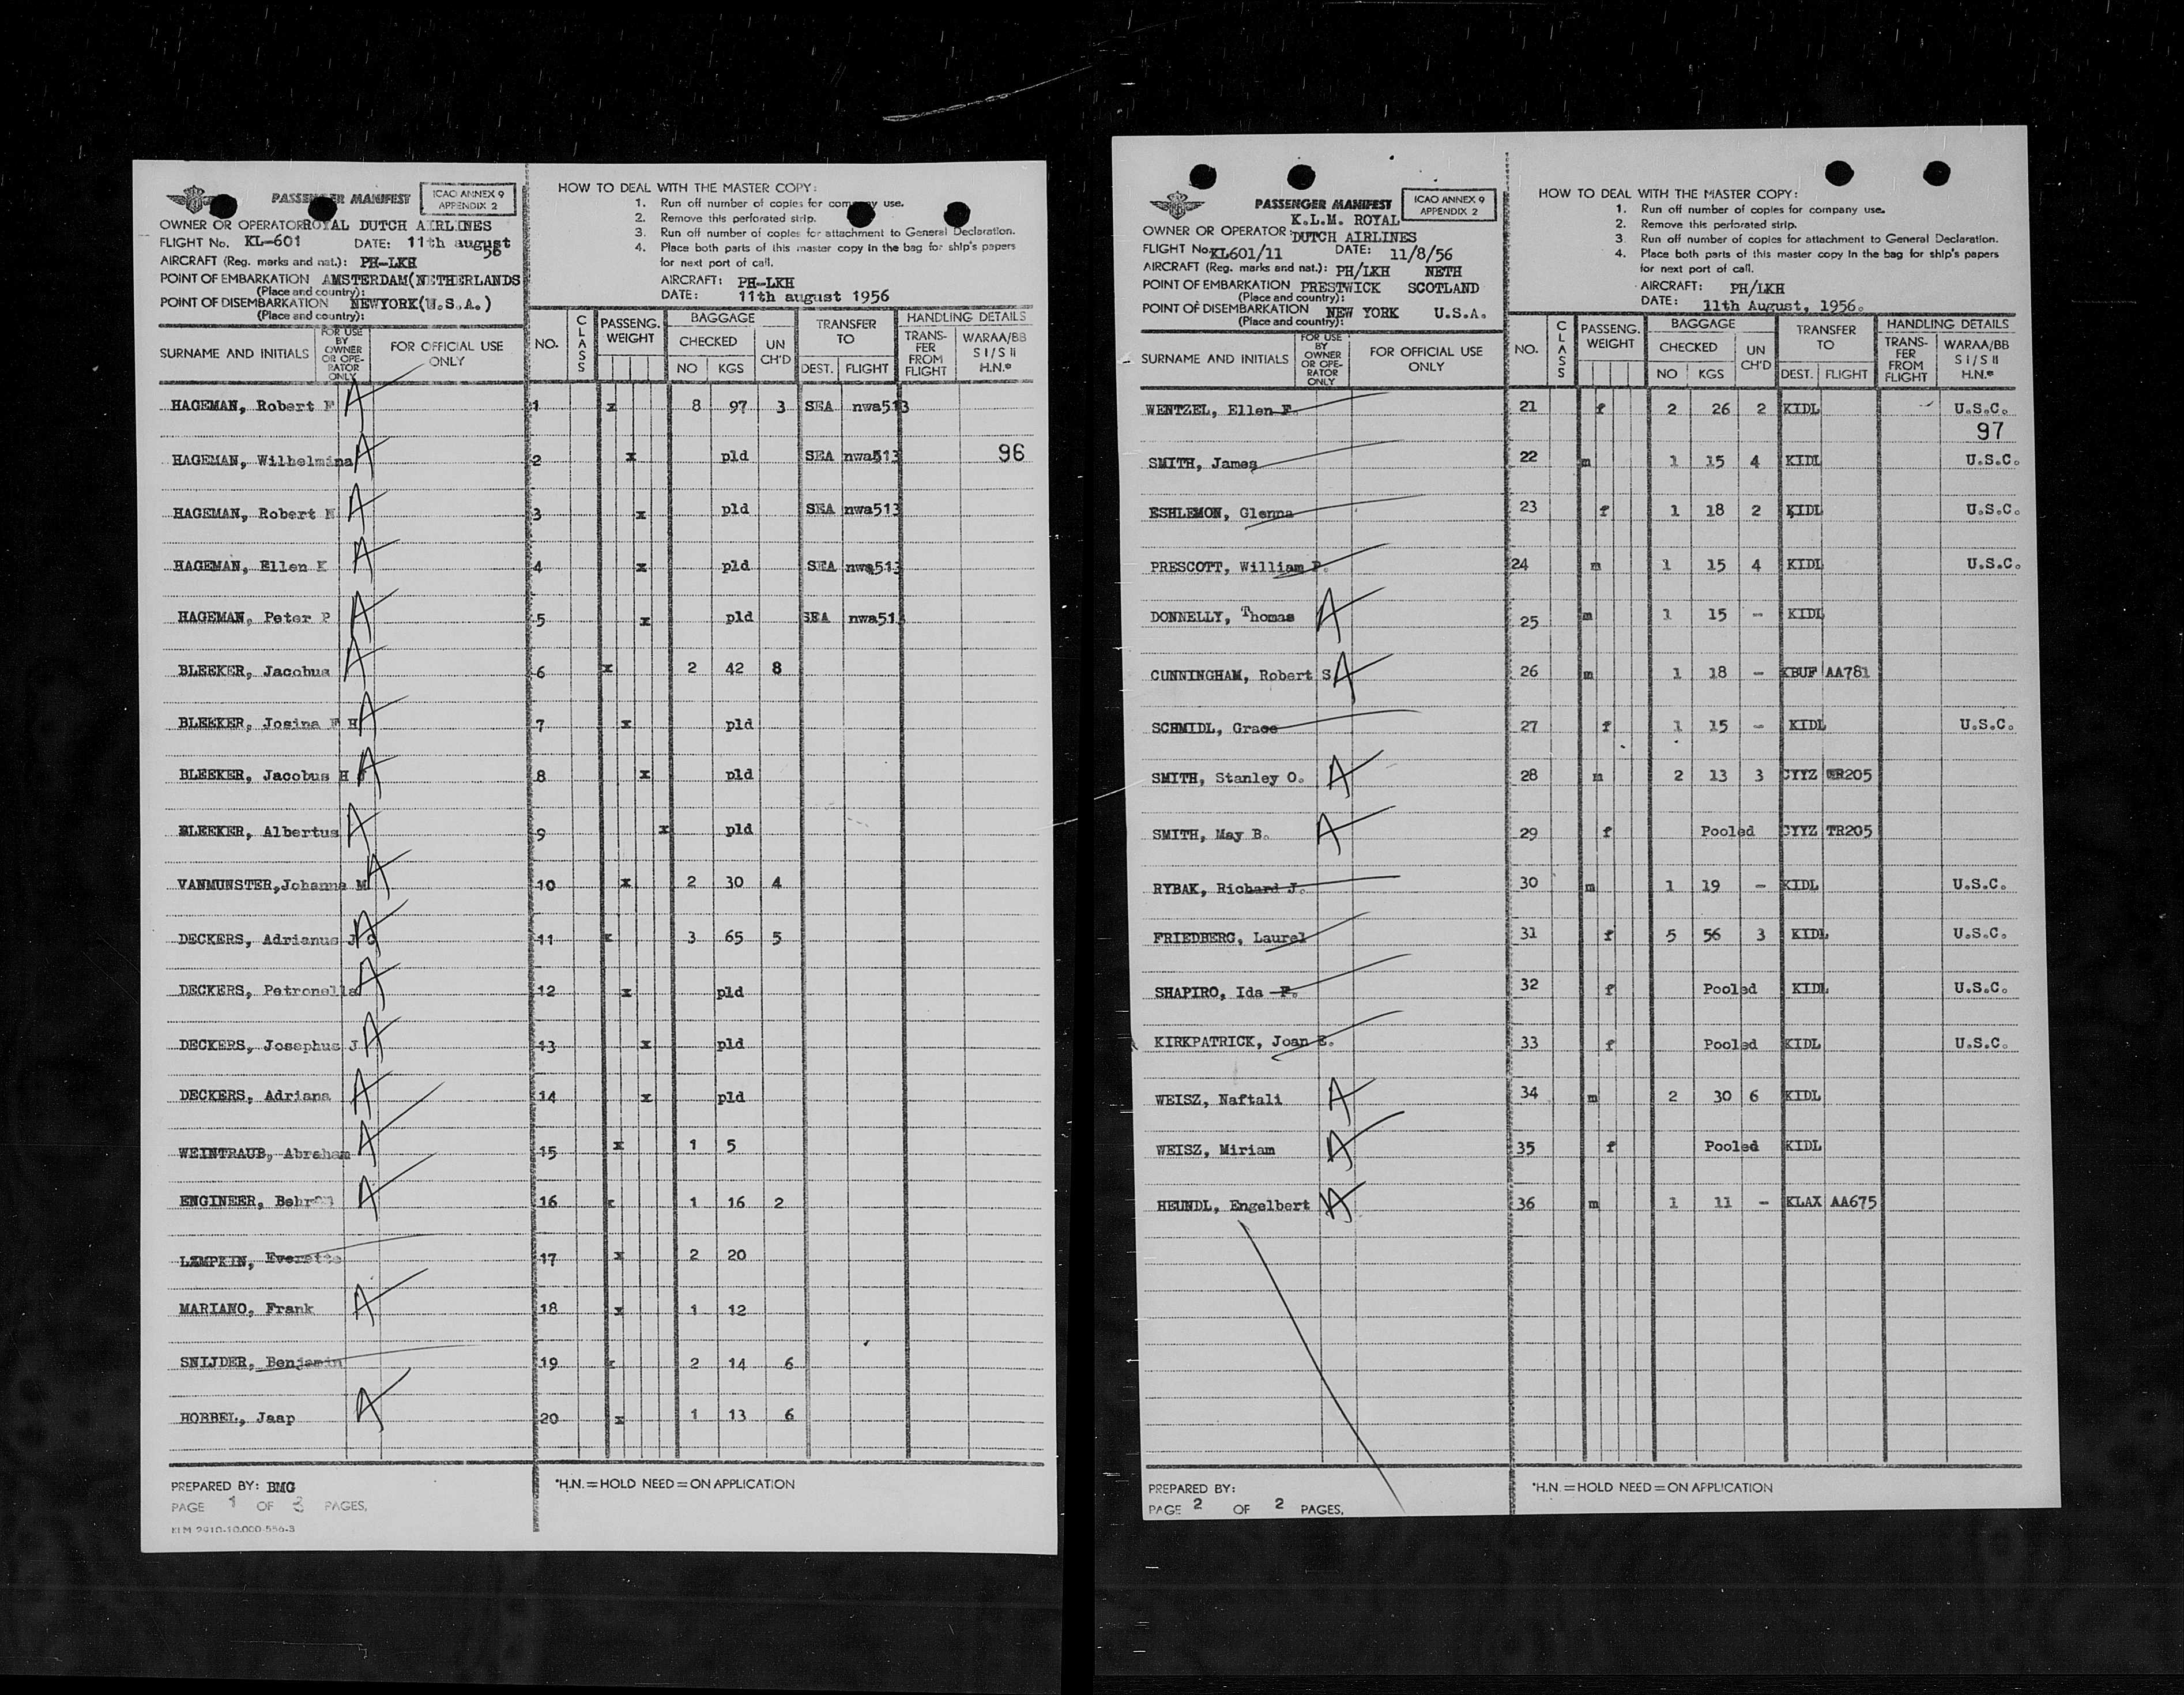 PASSENGER MANIFEST
ICAO ANNEX 9
APPENDIX 2
OWNER OR OPERATOR ROYAL DUTCH AIRLINES
FLIGHT No. KL-601 DATE: 11th august 56
AIRCRAFT (Reg. marks and nat.): PH-LKH
POINT OF EMBARKATION AMSTERDAM(NETHERLANDS
(Place and country):
POINT OF DISEMBARKATION NEWYORK(U.S.A.)
(Place and country):
HOW TO DEAL WITH THE MASTER COPY:
1. Run off number of copies for company use.
2. Remove this perforated strip.
3. Run off number of copies for attachment to General Declaration.
4. Place both parts of this master copy in the bag for ship's papers
for next port of call.
AIRCRAFT: PH-LKH
DATE: 11th august 1956
SURNAME AND INITIALS
FOR USE BY OWNER OR OPE-RATOR ONLY
FOR OFFICIAL USE ONLY
NO.
CLASS
PASSENG. WEIGHT
BAGGAGE
CHECKED
NO KGS
UN CH'D
TRANSFER TO
DEST. FLIGHT
HANDLING DETAILS
TRANS-FER FROM FLIGHT
WARAA/BB S I/S II H.N.*
HAGEMAN, Robert F A 1 x 8 97 3 SEA nwa513
HAGEMAN, Wilhelmina A 2 x pld SEA nwa513 96
HAGEMAN, Robert A 3 x pld SEA nwa513
HAGEMAN, Ellen K A 4 x pld SEA nwa513
HAGEMAN, Peter P A 5 x pld SEA nwa513
BLEEKER, Jacobus A 6 x 2 42 8
BLEEKER, Josina F H A 7 x pld
BLEEKER, Jacobus H A 8 x pld
BLEEKER, Albertus A 9 x pld
VANMUNSTER,Johanna M A 10 x 2 30 4
DECKERS, Adrianus J C A 11 x 3 65 5
DECKERS, Petronella A 12 x pld
DECKERS, Josephus J A 13 x pld
DECKERS, Adriana A 14 x pld
WEINTRAUB, Abraham A 15 x 1 5
ENGINEER, A 16 x 1 16 2
LAMPKIN, Everette 17 x 2 20
MARIANO, Frank A 18 x 1 12
SNIJDER, Benjamin 19 x 2 14 6
HOBBEL, Jaap A 20 x 1 13 6
PREPARED BY: BMG
PAGE 1 OF 3 PAGES,
KLM 2910-10.000-556-3
*H.N. = HOLD NEED = ON APPLICATION
PASSENGER MANIFEST
ICAO ANNEX 9
APPENDIX 2
K.L.M. ROYAL
OWNER OR OPERATOR: DUTCH AIRLINES
FLIGHT No. KL601/11 DATE: 11/8/56
AIRCRAFT (Reg. marks and nat.): PH/LKH NETH
POINT OF EMBARKATION PRESTWICK SCOTLAND
(Place and country):
POINT OF DISEMBARKATION NEW YORK U.S.A.
(Place and country):
HOW TO DEAL WITH THE MASTER COPY:
1. Run off number of copies for company use.
2. Remove this perforated strip.
3. Run off number of copies for attachment to General Declaration.
4. Place both parts of this master copy in the bag for ship's papers
for next port of call.
AIRCRAFT: PH/LKH
DATE: 11th August, 1956.
SURNAME AND INITIALS
FOR USE BY OWNER OR OPE-RATOR ONLY
FOR OFFICIAL USE ONLY
NO.
CLASS
PASSENG. WEIGHT
BAGGAGE
CHECKED
NO KGS
UN CH'D
TRANSFER TO
DEST. FLIGHT
HANDLING DETAILS
TRANS-FER FROM FLIGHT
WARAA/BB S I/S II H.N.*
WENTZEL, Ellen F. 21 f 2 26 2 KIDL U.S.C.
97
SMITH, James 22 m 1 15 4 KIDL U.S.C.
ESHLEMON, Glenna 23 f 1 18 2 KIDL U.S.C.
PRESCOTT, William P. 24 m 1 15 4 KIDL U.S.C.
DONNELLY, Thomas A 25 m 1 15 - KIDL
CUNNINGHAM, Robert S A 26 m 1 18 - KBUF AA781
SCHMIDL, Grace 27 f 1 15 - KIDL U.S.C.
SMITH, Stanley O. A 28 m 2 13 3 CYYZ TR205
SMITH, May B. A 29 f Pooled CYYZ TR205
RYBAK, Richard J. 30 m 1 19 - KIDL U.S.C.
FRIEDBERG, Laurel 31 f 5 56 3 KIDL U.S.C.
SHAPIRO, Ida F. 32 f Pooled KIDL U.S.C.
KIRKPATRICK, Joan E. 33 f Pooled KIDL U.S.C.
WEISZ, Naftali A 34 m 2 30 6 KIDL
WEISZ, Miriam A 35 f Pooled KIDL
HEUNDL, Engelbert A 36 m 1 11 - KLAX AA675
PREPARED BY:
PAGE 2 OF 2 PAGES,
*H.N. = HOLD NEED = ON APPLICATION